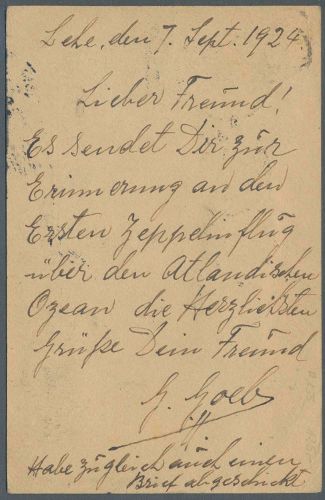 Lehe, den 7. Sept. 1924.
Lieber Freund!
Es sendet Dir zur
Erinnerung an den
Ersten Zeppelinflug
über den Atlandischen
Ozean die Herzlichsten
Grüße Dein Freund
G. Goeb
Habe zugleich auch einen
Brief abgeschickt